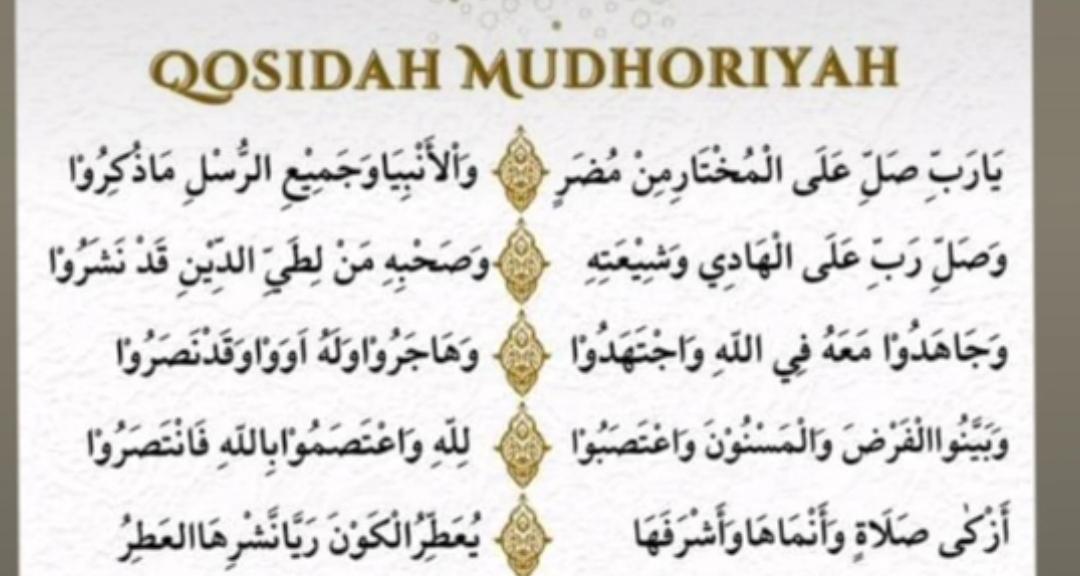 QOSIDAH MUDHORIYAH
يَارَبِّ صَلِّ عَلَى الْمُخْتَارِمِنْ مُضَرٍ وَاْلأَنْبِيَاوَجَمِيْعِ الرُّسْلِ مَاذُكِرُوْا
وَصَلِّ رَبِّ عَلَى الْهَادِي وَشِيْعَتِهِ وَصَحْبِهِ مَنْ لِطَيِّ الدِّيْنِ قَدْ نَشَرُوْا
وَجَاهَدُوْا مَعَهُ فِي اللّهِ وَاجْتَهَدُوْا وَهَاجَرُوْاوَلَهُ اَوَوْاوَقَدْنَصَرُوْا
وَبَيَّنُواالْفَرْضَ وَالْمَسْنُوْنَ وَاعْتَصَبُوْا لِلّهِ وَاعْتَصَمُوْابِاللّهِ فَانْتَصَرُوْا
أَزْكٰى صَلَاةٍ وَأَنْمَاهَاوَأَشْرَفَهَا يُعَطِّرُالْكَوْنَ رَيَّانَّشْرِهَاالعَطِرُ